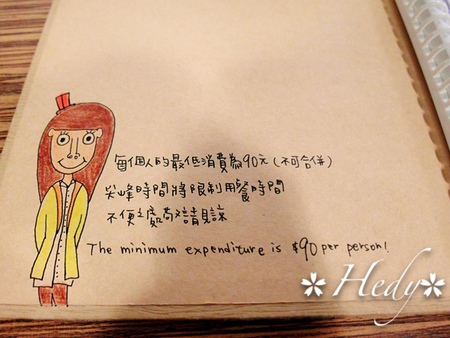 每個人的最低消費為90元(不可合併)
尖峰時間將限制用餐時間
不便之處尚請見諒
The minimum expenditure is $90 per person!
Hedy